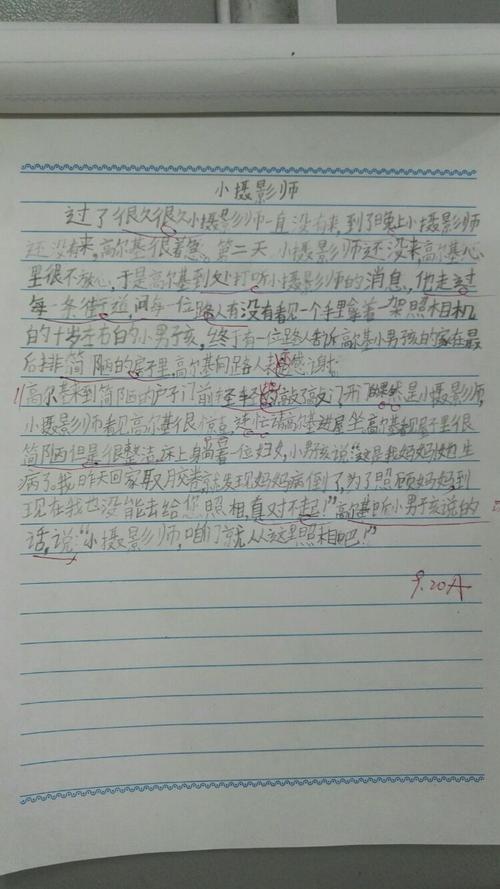 小摄影师
过了很久很久小摄影师一直没有来,到了晚上小摄影师
还没有来,高尔基很着急。第二天,小摄影师还没来,高尔基心
里很不放心,于是高尔基到处打听小摄影师的消息,他走过
每一条街道,问每一位路人有没有看见一个手里拿着一架照相机
的十岁左右的小男孩,终于有一位路人告诉高尔基小男孩的家在最
后排简陋的房子里,高尔基向路人表示感谢。
高尔基来到简陋的房子门前轻轻的敲了敲门,开门的果然是小摄影师,
小摄影师看见高尔基很惊喜,连忙请高尔基进屋坐,高尔基
简陋但是很整洁,床上身躺着一位妇女,小男孩说:"这是我妈妈她生
病了。我昨天回家取胶卷就发现妈妈病倒了,为了照顾妈妈到
现在我也没能去给您照相,真对不起!"高尔基听小男孩说的
话,说:"小摄影师,咱们就从这里照相吧!"
9.20